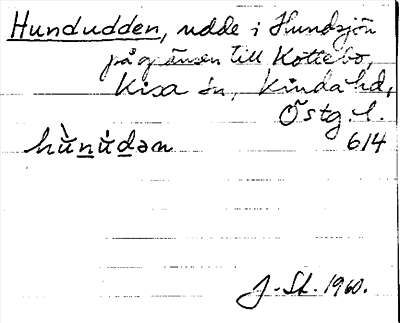 Hundudden, udde i Hundsjön
på gränsen till Kottebo,
Kisa sn, Kinda hd,
Östg. l.
hùnúdən 614
J. St. 1960.